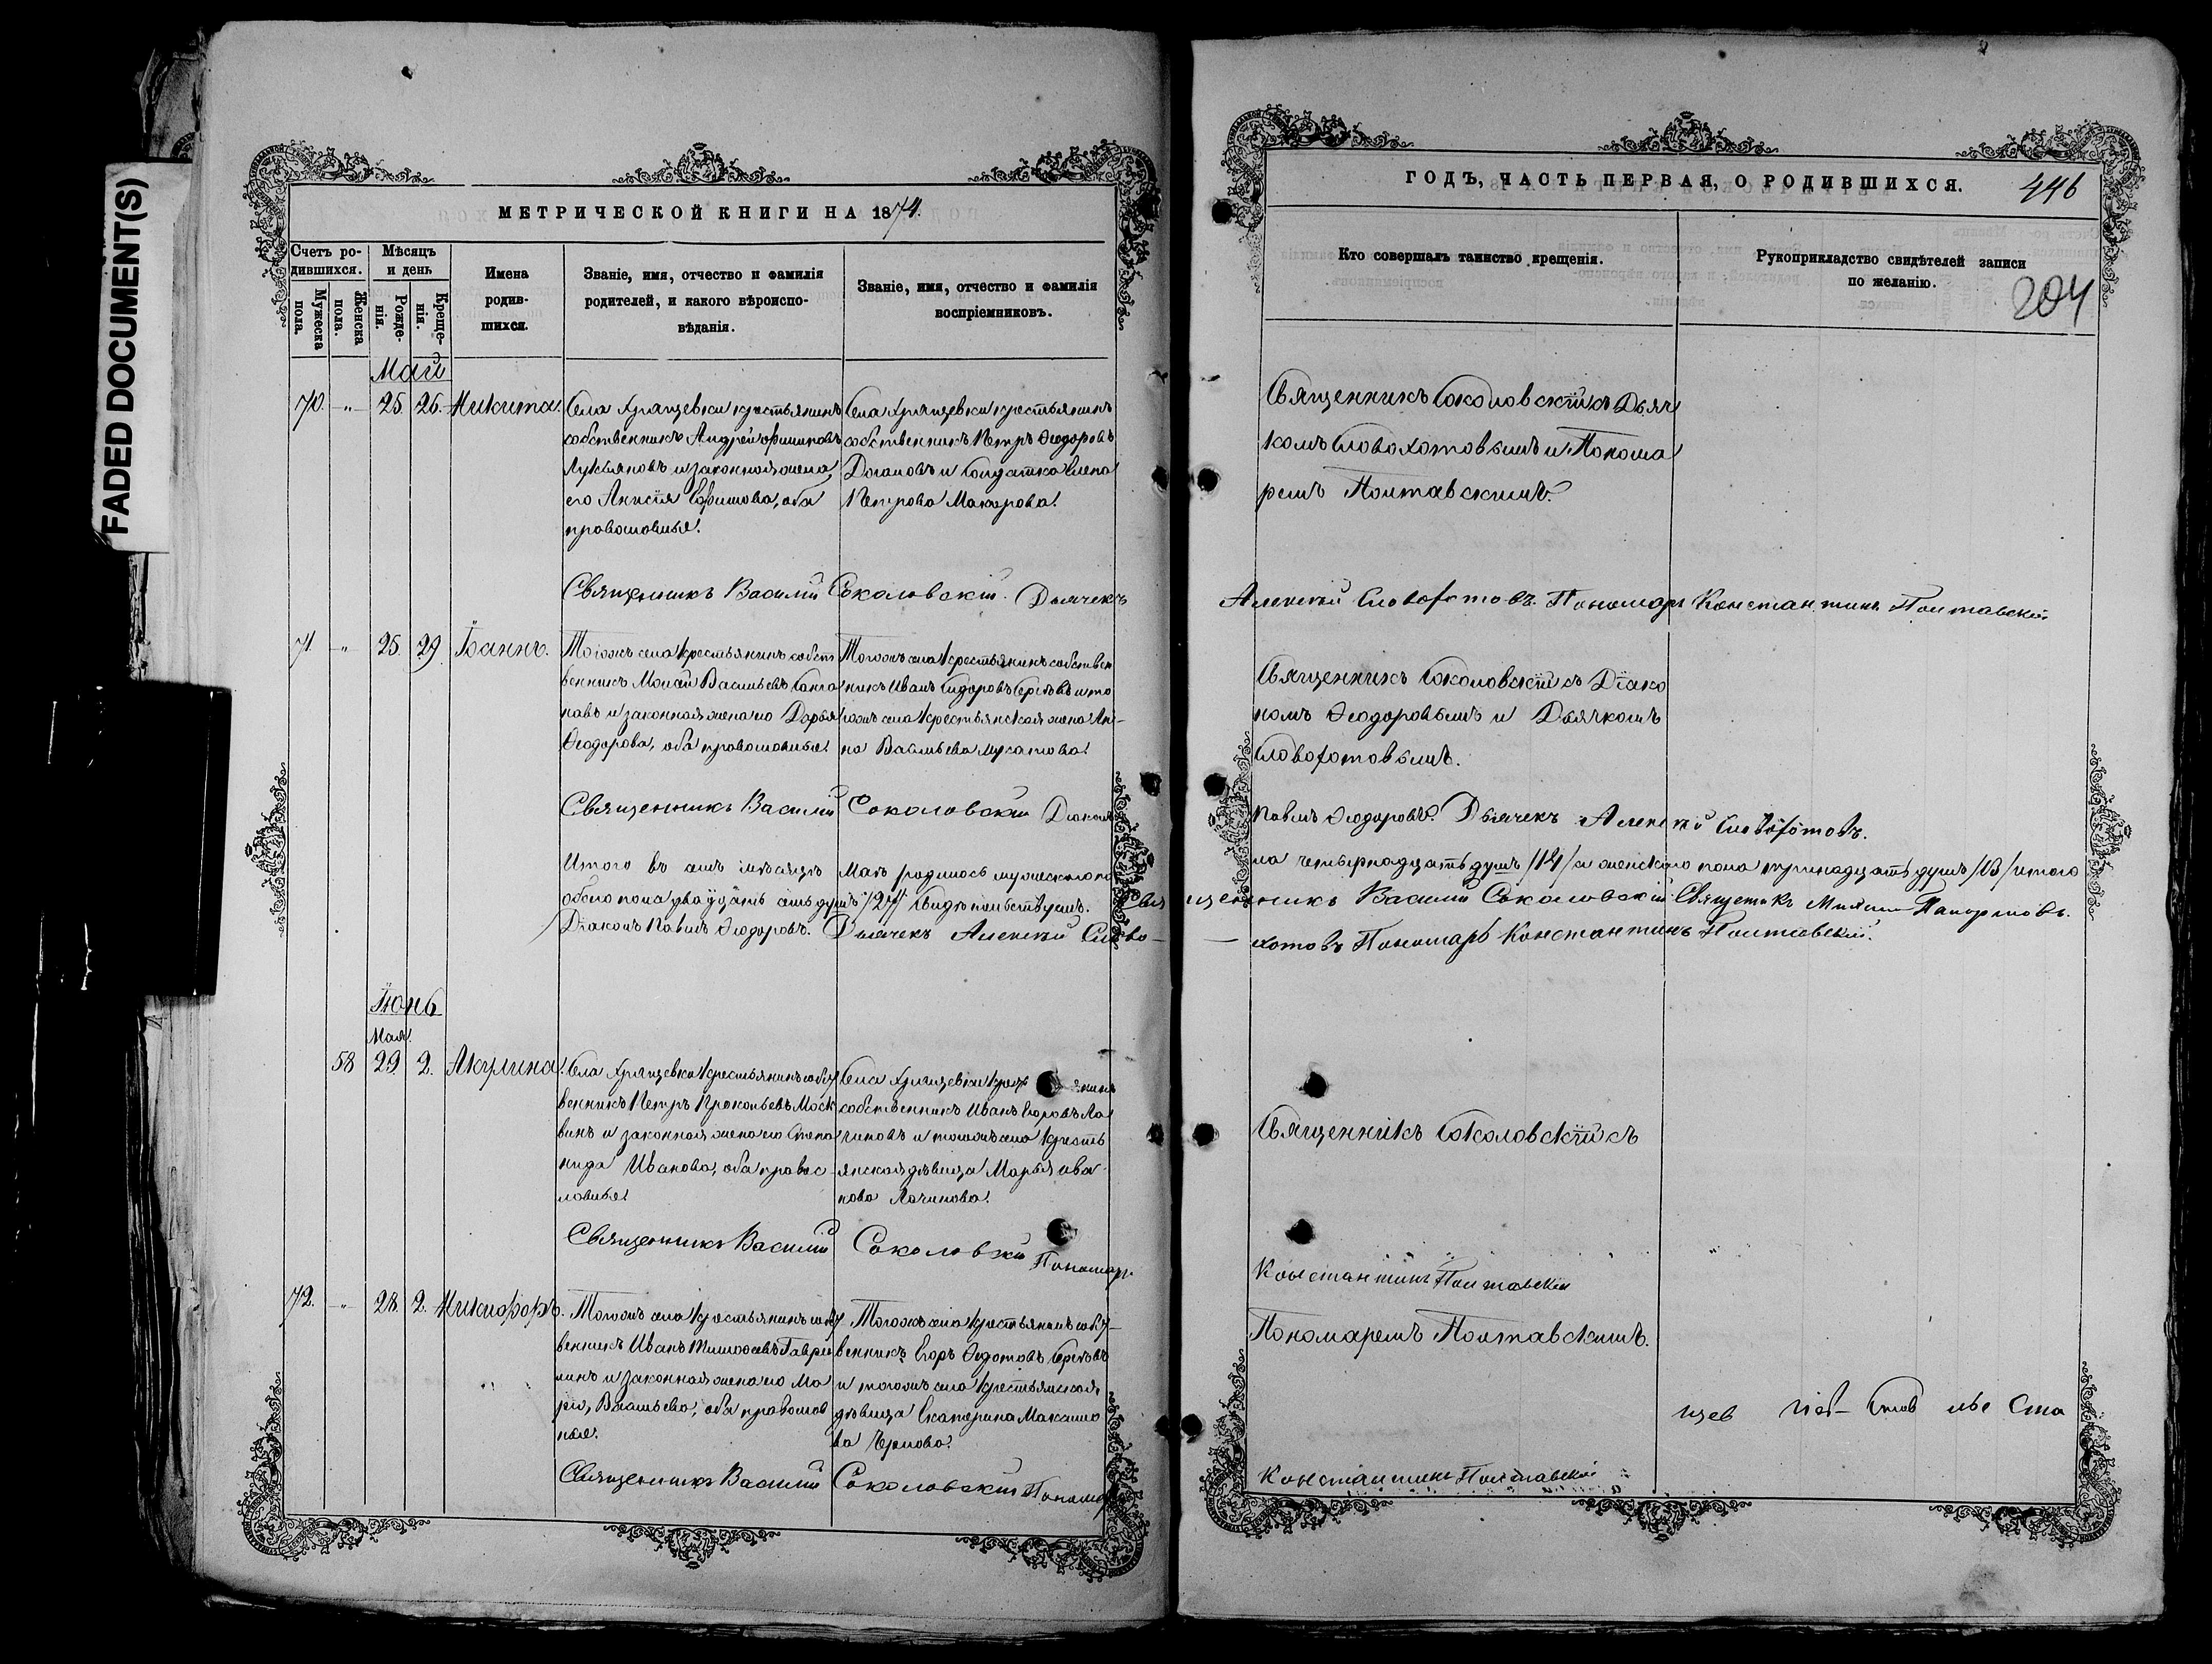 FADED DOCUMENT(S)
МЕТРИЧЕСКОЙ КНИГИ НА 1874.
Счетъ ро-
дившихся.
Мужеска
пола.
Женска
пола.
Мѣсяцъ
и день
Рожде-
нія.
Креще-
нія.
Имена
родив-
шихся.
Званіе, имя, отчество и фамилія
родителей, и какого вѣроиспо-
вѣданія.
Званіе, имя, отчество и фамилія
воспріемниковъ.
Май
70. -„- 25. 26. Никита.
Села Хрящевки крестьянинъ
собственникъ Андрей Филиповъ
Лукіяновъ и законная жена
его Анисія Ефимова, оба
православные.
Села Хрящевки крестьянинъ
собственникъ Петръ Ѳеодоровъ
и Солдатка Елена
Петрова Макарова.
Священникъ Василій Соколовскій. Дьячекъ
71 -„- 25. 29. Іоаннъ.
Тогожъ села крестьянинъ собст
венникъ Моисей Васильевъ
новъ и законная жена его Дарья
Ѳеодорова, оба православные.
Тогожъ села крестьянинъ собствен
никъ Иванъ Сидоровъ и то
гожъ села крестьянская жена Ан-
на Васильева Мусатова.
Священникъ Василій Соколовскій Діаконъ
Итого въ семъ мѣсяцѣ Маѣ родилось мужескаго по
обоего пола двадцать семь душъ /27/ Свидѣтельствуемъ. Свя
Діаконъ Павелъ Ѳеодоровъ. Дьячекъ Алексѣй Слово-
Іюнь
Мая.
58 29. 2. Акулина.
Села Хрящевки крестьянинъ собст
венникъ Петръ Прокопьевъ Моск
винъ и законная жена его Степа
нида Иванова, оба правос-
лавные.
Села Хрящевки
собственникъ Иванъ Егоровъ Ла
чиновъ и тогожъ села кресть
янская дѣвица Марья Ива-
нова Лачинова.
Священникъ Василій Соколовскій Пономарь
72. -„- 28. 2. Никифоръ.
Тогожъ села крестьянинъ собст
венникъ Иванъ Тимоѳеевъ Гаври
линъ и законная жена его Ма
рія, Васильева, оба православ
ные.
Тогожъ села крестьянинъ собст-
венникъ Егоръ Ѳедотовъ
и тогожъ села крестьянская
дѣвица Екатерина Максимо
ва Чернова.
Священникъ Василій Соколовскій Пономарь
ГОДЪ, ЧАСТЬ ПЕРВАЯ, О РОДИВШИХСЯ.
446
Кто совершалъ таинство крещенія.
Рукоприкладство свидѣтелей записи
по желанію.
204
Священникъ Соколовскій съ Дьяч
комъ Словохотовымъ и Понома
ремъ Полтавскимъ.
Алексѣй Словохотовъ. Пономарь Константинъ Полтавскій
Священникъ Соколовскій съ Діако
номъ Ѳеодоровымъ и Дьячкомъ
Словохотовымъ.
Павелъ Ѳеодоровъ. Дьячекъ Алексѣй Словохотовъ.
ла четырнадцать душъ /14/ а женскаго пола тринадцать душъ /13/ итого
щенникъ Василій Соколовскій Священникъ
-хотовъ Пономарь Константинъ Полтавскій.
Священникъ Соколовскій съ
Константинъ Полтавскій
Пономаремъ Полтавскимъ.
Константинъ Полтавскій